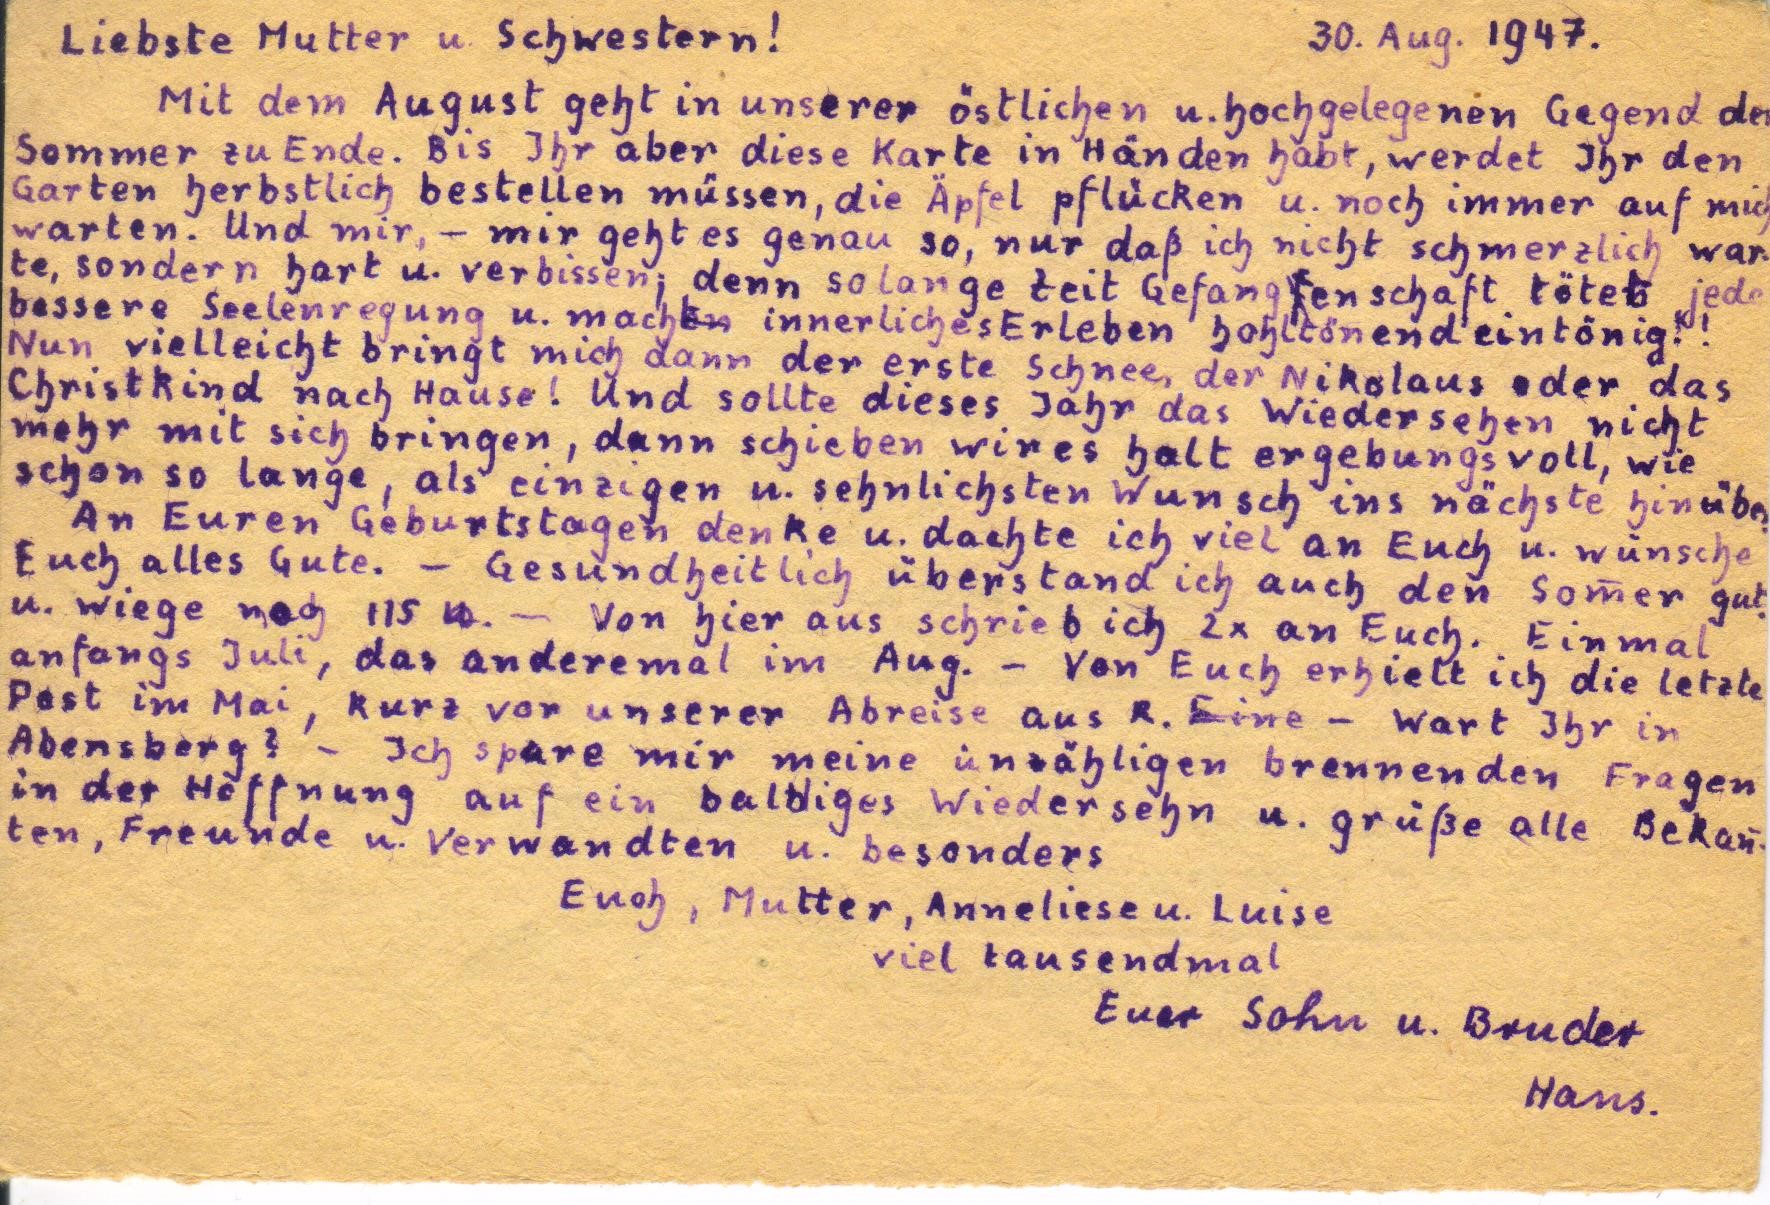 Liebste Mutter u. Schwestern! 30. Aug. 1947.
Mit dem August geht in unserer östlichen u. hochgelegenen Gegend der
Sommer zu Ende. Bis Ihr aber diese Karte in Händen habt, werdet Ihr den
Garten herbstlich bestellen müssen, die Äpfel pflücken u. noch immer auf mich
warten. Und mir, – mir geht es genau so, nur daß ich nicht schmerzlich war-
te, sondern hart u. verbissen; denn solange Zeit Gefangenschaft tötet jede
bessere Seelenregung u. macht innerliches Erleben hohltönend eintönig!!
Nun vielleicht bringt mich dann der erste Schnee, der Nikolaus oder das
Christkind nach Hause! Und sollte dieses Jahr das Wiedersehen nicht
mehr mit sich bringen, dann schieben wir es halt ergebungsvoll, wie
schon so lange, als einzigen u. sehnlichsten Wunsch ins nächste hinüber.
An Euren Geburtstagen denke u. dachte ich viel an Euch u. wünsche
Euch alles Gute. – Gesundheitlich überstand ich auch den Som̄er gut
u. wiege noch 115 ℔. – Von hier aus schrieb ich 2x an Euch. Einmal
anfangs Juli, das anderemal im Aug. – Von Euch erhielt ich die letzte
Post im Mai, kurz vor unserer Abreise aus K. Eine – Wart Ihr in
Abensberg? – Ich spare mir meine unzähligen brennenden Fragen
in der Hoffnung auf ein baldiges Wiedersehn u. grüße alle Bekan̄-
ten, Freunde u. Verwandten u. besonders
Euch, Mutter, Anneliese u. Luise
viel tausendmal
Euer Sohn u. Bruder
Hans.